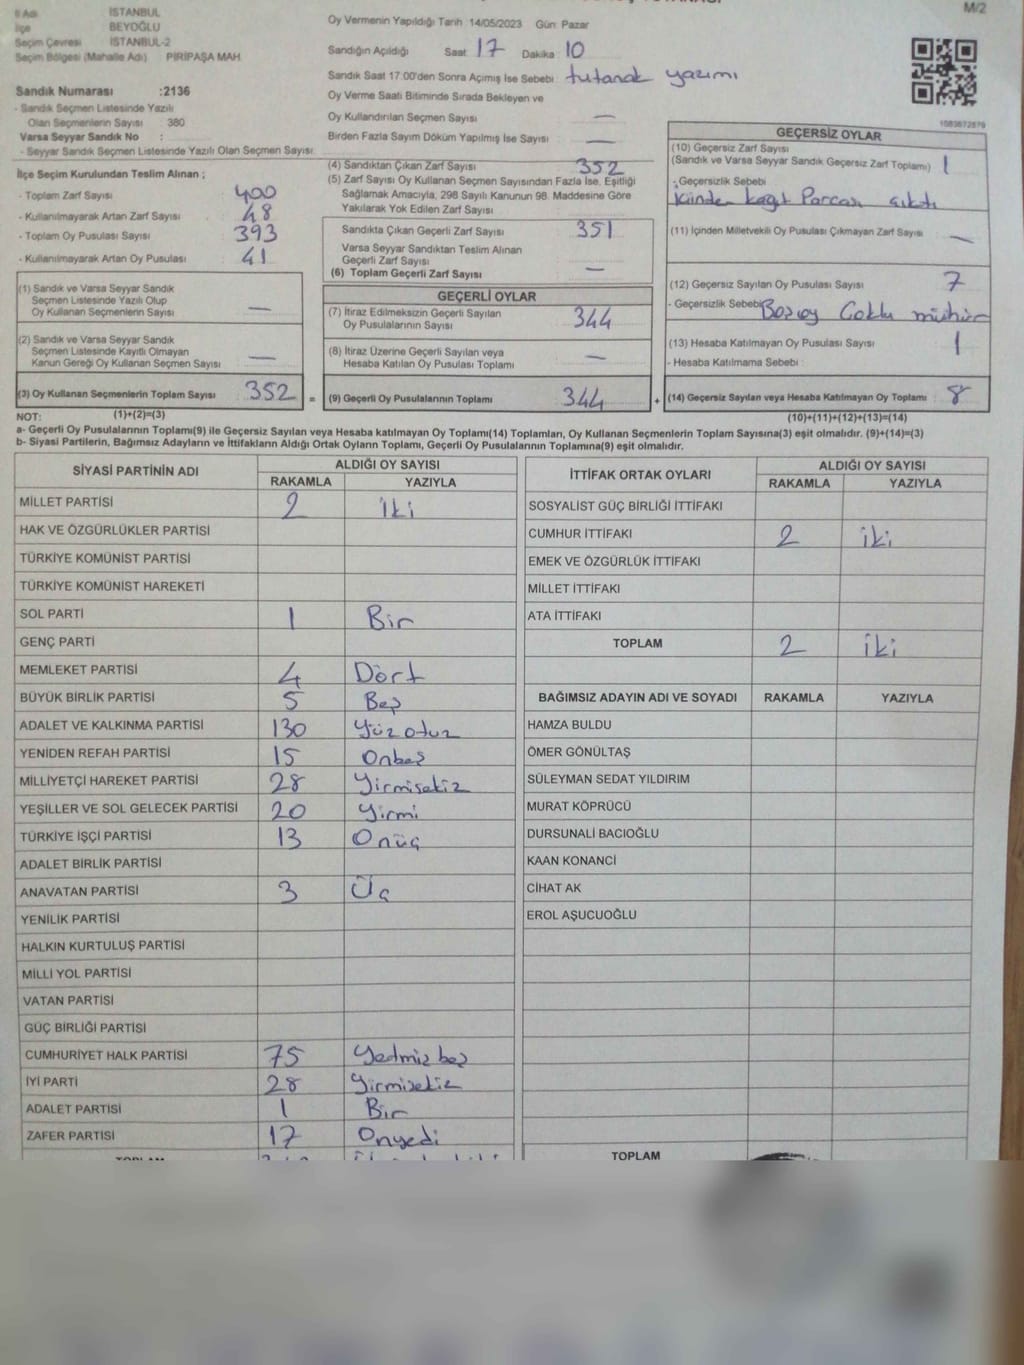 İli Adı İSTANBUL
İlçe BEYOĞLU
Seçim Çevresi İSTANBUL-2
Seçim Bölgesi (Mahalle Adı) PİRİPAŞA MAH
Sandık Numarası :2136
- Sandık Seçmen Listesinde Yazılı
Olan Seçmenlerin Sayısı 380
Varsa Seyyar Sandık No :
- Seyyar Sandık Seçmen Listesinde Yazılı Olan Seçmen Sayısı:
İlçe Seçim Kurulundan Teslim Alınan ;
- Toplam Zarf Sayısı 400
- Kullanılmayarak Artan Zarf Sayısı 48
- Toplam Oy Pusulası Sayısı 393
- Kullanılmayarak Artan Oy Pusulası 41
(1) Sandık ve Varsa Seyyar Sandık
Seçmen Listesinde Yazılı Olup
Oy Kullanan Seçmenlerin Sayısı —
(2) Sandık ve Varsa Seyyar Sandık
Seçmen Listesinde Kayıtlı Olmayan
Kanun Gereği Oy Kullanan Seçmen Sayısı —
(3) Oy Kullanan Seçmenlerin Toplam Sayısı 352 =
Oy Vermenin Yapıldığı Tarih 14/05/2023 Gün: Pazar
Sandığın Açıldığı Saat 17 Dakika 10
Sandık Saat 17:00'den Sonra Açımış İse Sebebi: tutanak yazımı
Oy Verme Saati Bitiminde Sırada Bekleyen ve
Oy Kullandırılan Seçmen Sayısı —
Birden Fazla Sayım Döküm Yapılmış İse Sayısı —
(4) Sandıktan Çıkan Zarf Sayısı 352
(5) Zarf Sayısı Oy Kullanan Seçmen Sayısından Fazla İse, Eşitliği
Sağlamak Amacıyla, 298 Sayılı Kanunun 98. Maddesine Göre
Yakılarak Yok Edilen Zarf Sayısı
Sandıkta Çıkan Geçerli Zarf Sayısı 351
Varsa Seyyar Sandıktan Teslim Alınan
Geçerli Zarf Sayısı
(6) Toplam Geçerli Zarf Sayısı —
GEÇERLİ OYLAR
(7) İtiraz Edilmeksizin Geçerli Sayılan
Oy Pusulalarının Sayısı 344
(8) İtiraz Üzerine Geçerli Sayılan veya
Hesaba Katılan Oy Pusulası Toplamı —
(9) Geçerli Oy Pusulalarının Toplamı 344 +
M/2
1083672879
GEÇERSİZ OYLAR
(10) Geçersiz Zarf Sayısı
(Sandık ve Varsa Seyyar Sandık Geçersiz Zarf Toplamı) 1
- Geçersizlik Sebebi
içinden kağıt Parçası çıktı
(11) İçinden Milletvekili Oy Pusulası Çıkmayan Zarf Sayısı —
(12) Geçersiz Sayılan Oy Pusulası Sayısı 7
- Geçersizlik Sebebi Boş oy Çoklu mühür
(13) Hesaba Katılmayan Oy Pusulası Sayısı 1
- Hesaba Katılmama Sebebi :
(14) Geçersiz Sayılan veya Hesaba Katılmayan Oy Toplamı 8
NOT: (1)+(2)=(3) (10)+(11)+(12)+(13)=(14)
a- Geçerli Oy Pusulalarının Toplamı(9) ile Geçersiz Sayılan veya Hesaba katılmayan Oy Toplamı(14) Toplamları, Oy Kullanan Seçmenlerin Toplam Sayısına(3) eşit olmalıdır. (9)+(14)=(3)
b- Siyasi Partilerin, Bağımsız Adayların ve İttifakların Aldığı Ortak Oyların Toplamı, Geçerli Oy Pusulalarının Toplamına(9) eşit olmalıdır.
SİYASİ PARTİNİN ADI ALDIĞI OY SAYISI
RAKAMLA YAZIYLA
MİLLET PARTİSİ 2 iki
HAK VE ÖZGÜRLÜKLER PARTİSİ
TÜRKİYE KOMÜNİST PARTİSİ
TÜRKİYE KOMÜNİST HAREKETİ
SOL PARTİ 1 Bir
GENÇ PARTİ
MEMLEKET PARTİSİ 4 Dört
BÜYÜK BİRLİK PARTİSİ 5 Beş
ADALET VE KALKINMA PARTİSİ 130 Yüzotuz
YENİDEN REFAH PARTİSİ 15 Onbeş
MİLLİYETÇİ HAREKET PARTİSİ 28 Yirmisekiz
YEŞİLLER VE SOL GELECEK PARTİSİ 20 Yirmi
TÜRKİYE İŞÇİ PARTİSİ 13 Onüç
ADALET BİRLİK PARTİSİ
ANAVATAN PARTİSİ 3 Üç
YENİLİK PARTİSİ
HALKIN KURTULUŞ PARTİSİ
MİLLİ YOL PARTİSİ
VATAN PARTİSİ
GÜÇ BİRLİĞİ PARTİSİ
CUMHURİYET HALK PARTİSİ 75 Yedmiş beş
İYİ PARTİ 28 Yirmisekiz
ADALET PARTİSİ 1 Bir
ZAFER PARTİSİ 17 Onyedi
TOPLAM
İTTİFAK ORTAK OYLARI ALDIĞI OY SAYISI
RAKAMLA YAZIYLA
SOSYALİST GÜÇ BİRLİĞİ İTTİFAKI
CUMHUR İTTİFAKI 2 iki
EMEK VE ÖZGÜRLÜK İTTİFAKI
MİLLET İTTİFAKI
ATA İTTİFAKI
TOPLAM 2 iki
BAĞIMSIZ ADAYIN ADI VE SOYADI RAKAMLA YAZIYLA
HAMZA BULDU
ÖMER GÖNÜLTAŞ
SÜLEYMAN SEDAT YILDIRIM
MURAT KÖPRÜCÜ
DURSUNALİ BACIOĞLU
KAAN KONANCİ
CİHAT AK
EROL AŞUCUOĞLU
TOPLAM